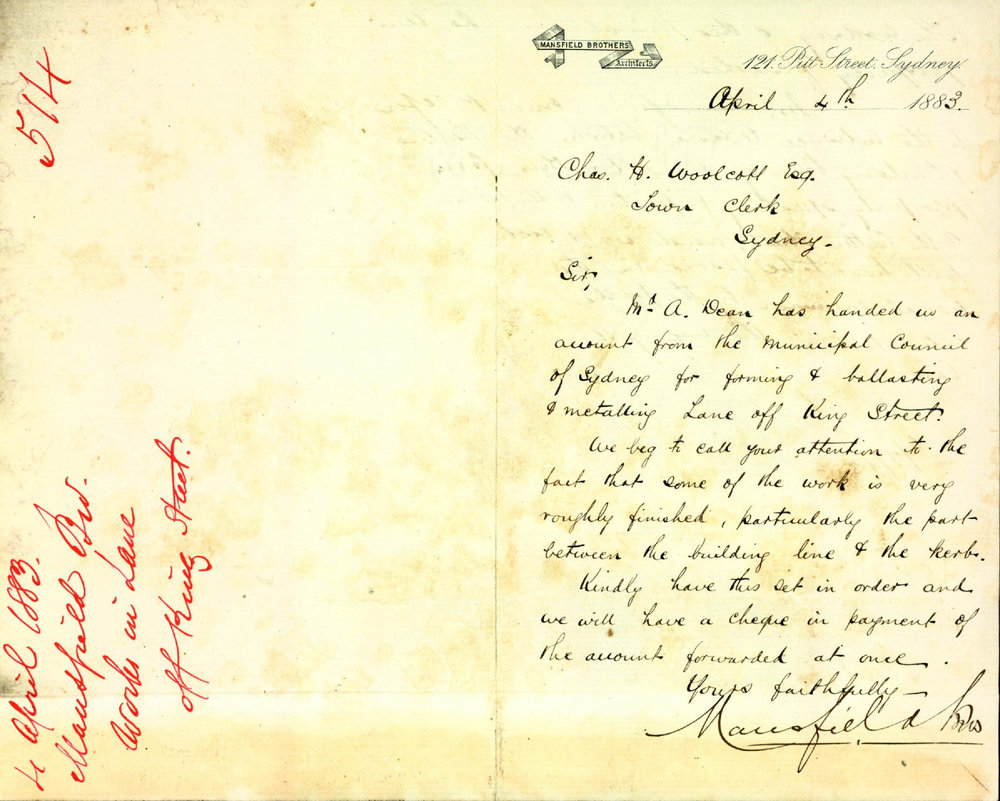 514
4 April 1883.
Mansfield Bro.
Works in Lane
off King Street.
MANSFIELD BROTHERS
Architects
121. Pitt Street, Sydney.
April 4th 1883.
Chas. H. Woolcott Esq.
Town Clerk
Sydney.
Sir,
Mr. A. Dean has handed us an
account from the Municipal Council
of Sydney for forming & ballasting
& metalling Lane off King Street.
We beg to call your attention to the
fact that some of the work is very
roughly finished, particularly the part
between the building line & the kerbs.
Kindly have this set in order and
we will have a cheque in payment of
the account forwarded at once.
Yours faithfully
Mansfield Bros